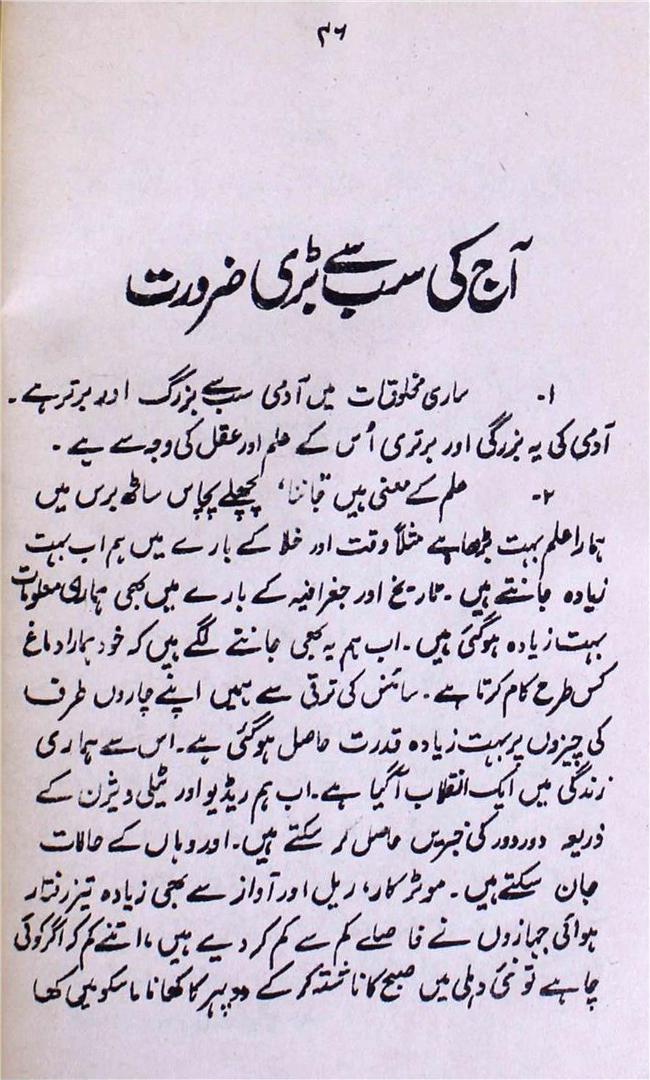 ۴۶
آج کی سب سے بڑی ضرورت
۱۔ ساری مخلوقات میں آدمی سب سے بزرگ اور برتر ہے۔
آدمی کی یہ بزرگی اور برتری اُس کے علم اور عقل کی وجہ سے ہے۔
۲۔ علم کے معنی ہیں 'جاننا' پچھلے پچاس ساٹھ برس میں
ہمارا علم بہت بڑھا ہے مثلاً وقت اور خلا کے بارے میں ہم اب بہت
زیادہ جانتے ہیں۔ تاریخ اور جغرافیہ کے بارے میں بھی ہماری معلومات
بہت زیادہ ہو گئی ہیں۔ اب ہم یہ بھی جاننے لگے ہیں کہ خود ہمارا دماغ
کس طرح کام کرتا ہے۔ سائنس کی ترقی سے ہمیں اپنے چاروں طرف
کی چیزوں پر بہت زیادہ قدرت حاصل ہو گئی ہے۔ اس سے ہماری
زندگی میں ایک انقلاب آ گیا ہے۔ اب ہم ریڈیو اور ٹیلی ویژن کے
ذریعہ دور دور کی خبریں حاصل کر سکتے ہیں۔ اور وہاں کے حالات
جان سکتے ہیں۔ موٹر کار، ریل اور آواز سے بھی زیادہ تیز رفتار
ہوائی جہازوں نے فاصلے کم سے کم کر دیے ہیں، اتنے کم کہ اگر کوئی
چاہے تو نئی دہلی میں صبح کا ناشتہ کر کے دوپہر کا کھانا ماسکو میں کھا